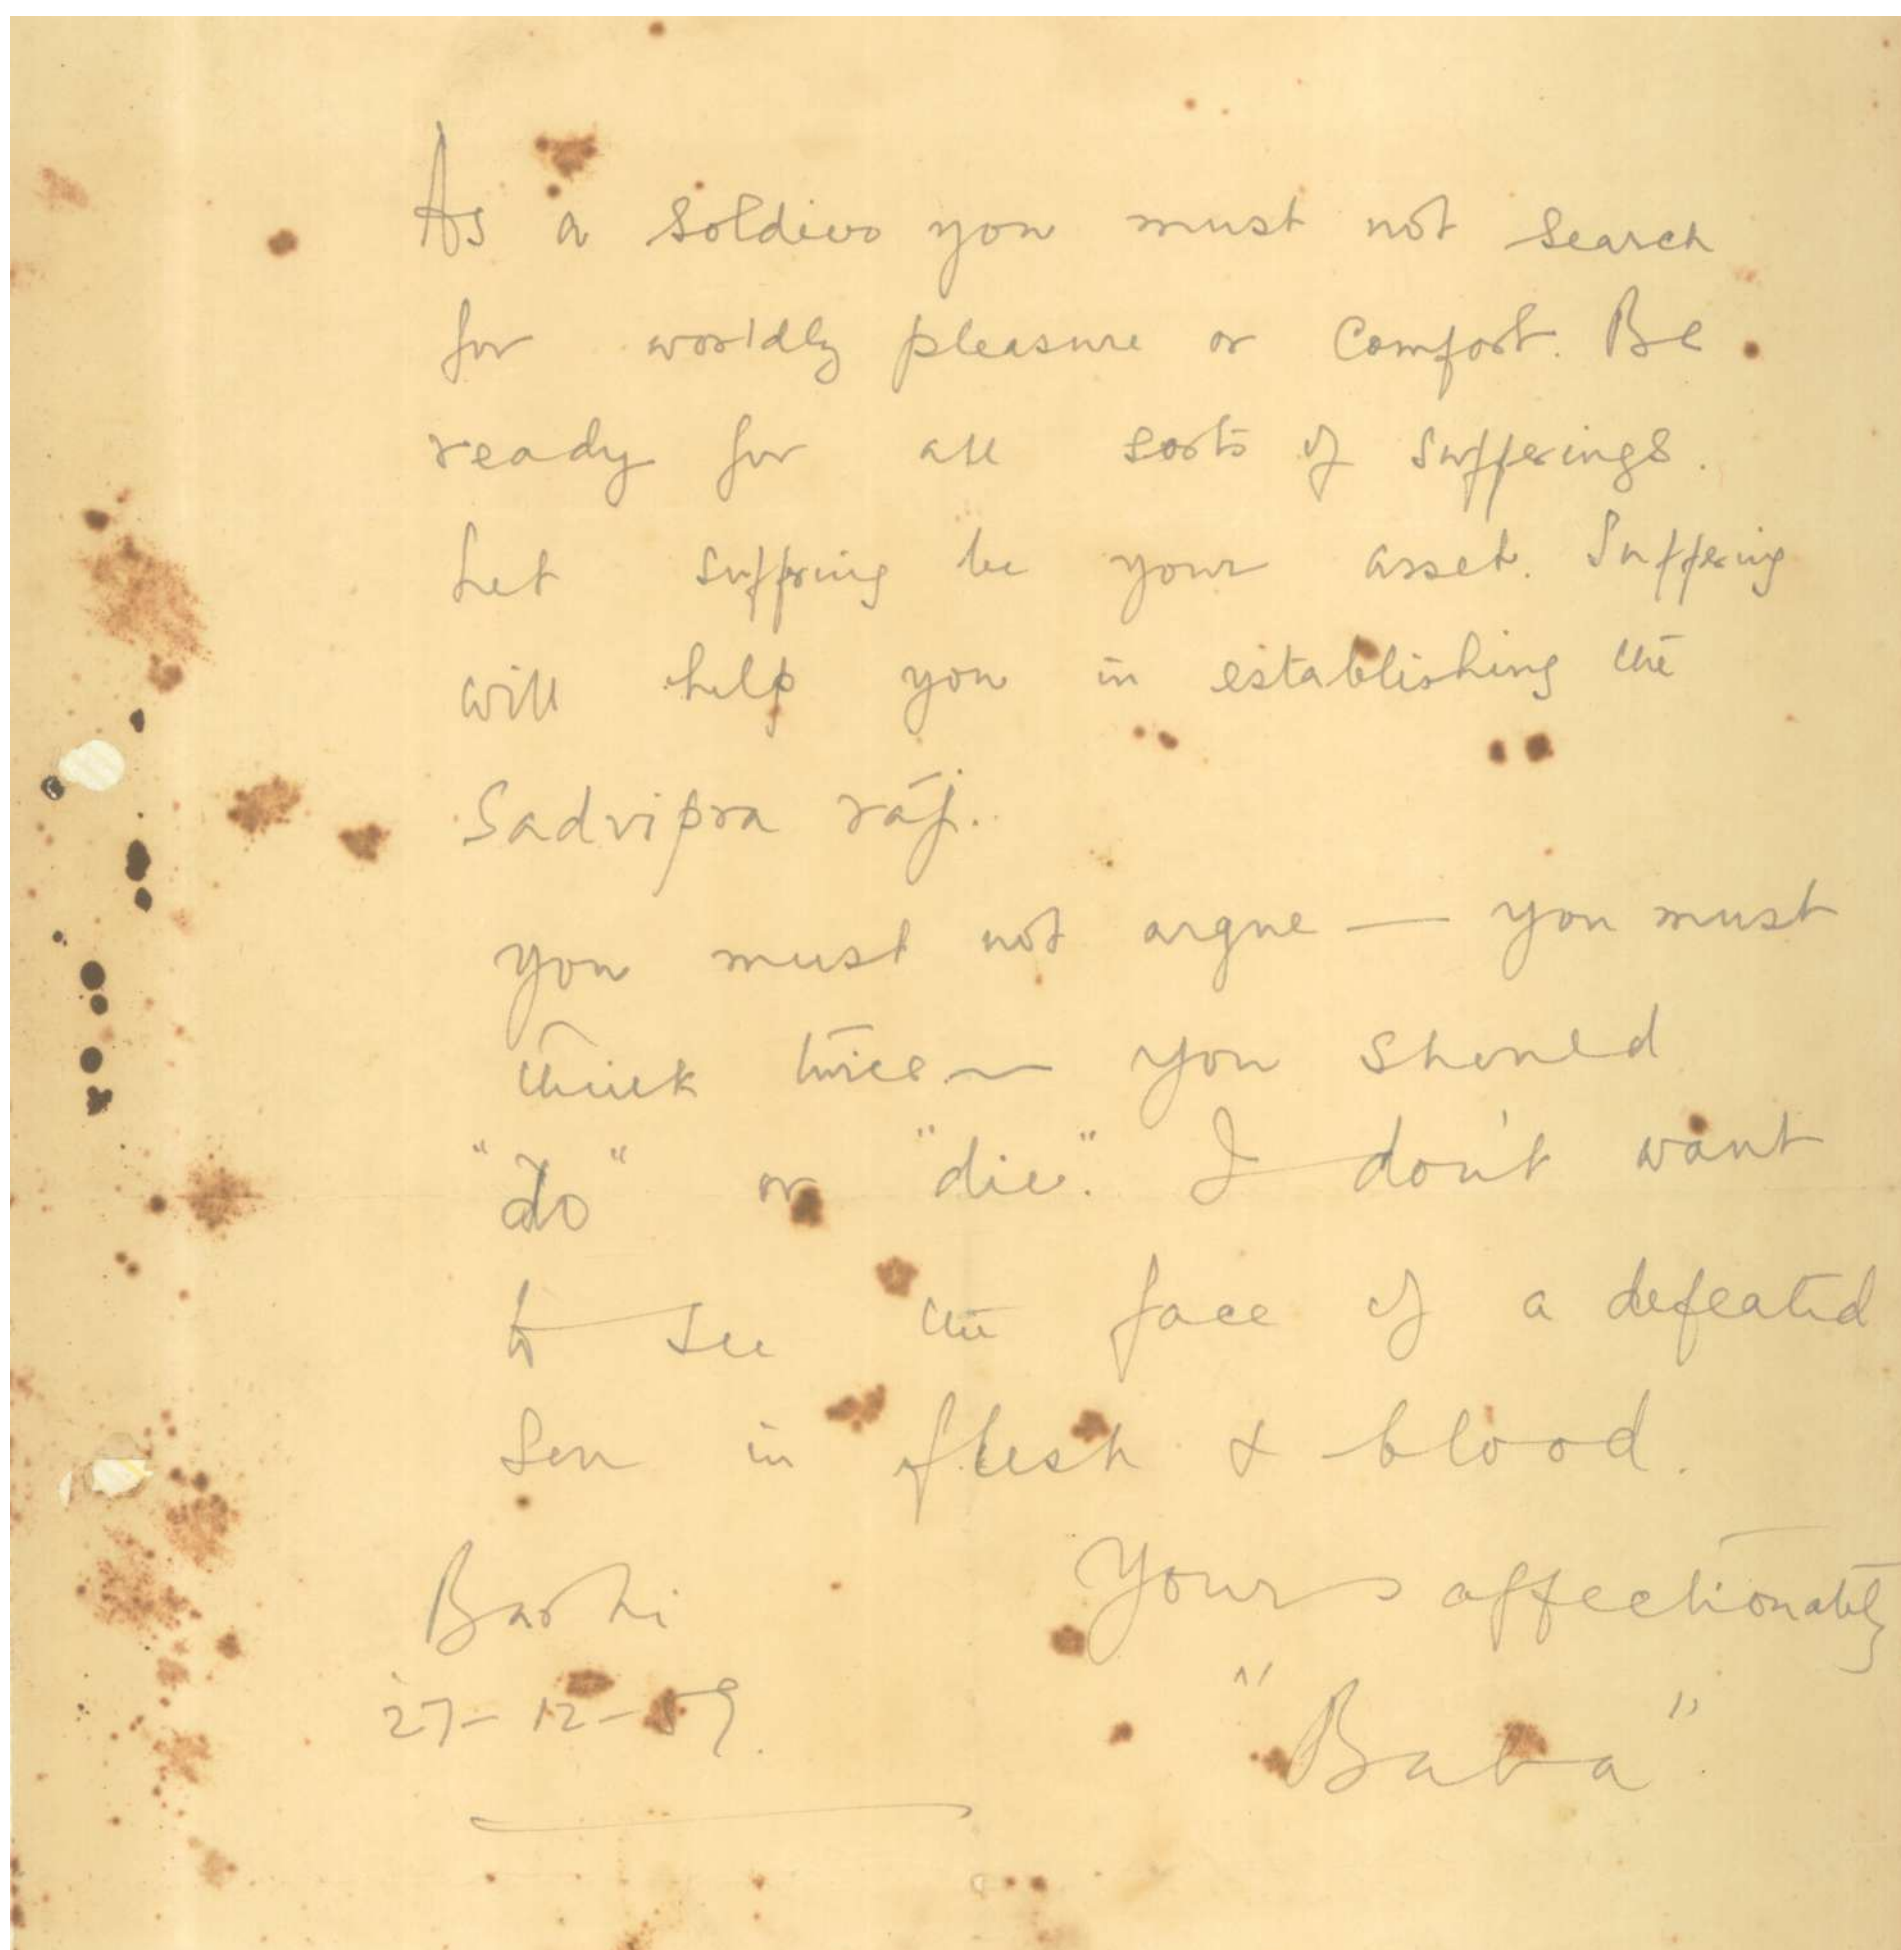 As a soldier you must not search
for worldly pleasure or Comfort. Be
ready for all sorts of sufferings.
Let suffring be your asset. Suffering
will help you in establishing the
Sadvipra ráj.
you must not argue — you must
think twice — you should
"do" or "die". I don't want
to see the face of a defeated
Son in flesh & blood.
Yours affectionately
"Baba"
27-12-59.